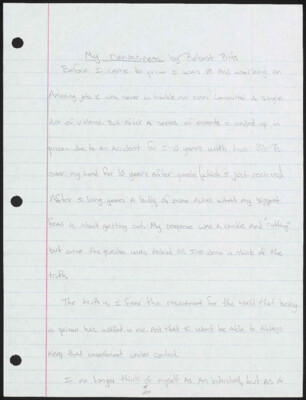 My Nervousness by Robert Bris
Before I came to prison I was 18 and working an
Amazing job. I was never in trouble nor ever committed a single
Act of violence. But after a series of events I ended up in
prison due to an accident for 5-10 years with two
over my head for 10 years after parole (which I just received
After 5 long years A buddy of mine Asked what my biggest
fear is About getting out. My response was A smile And "nothing"
but since the question was Asked All I've done is think of the
truth.
The truth is I fear the resentment for the world that being
in prison has instilled in me. And that I won't be able to always
keep that resentment under control.
I no longer think of myself As An individual, but As A